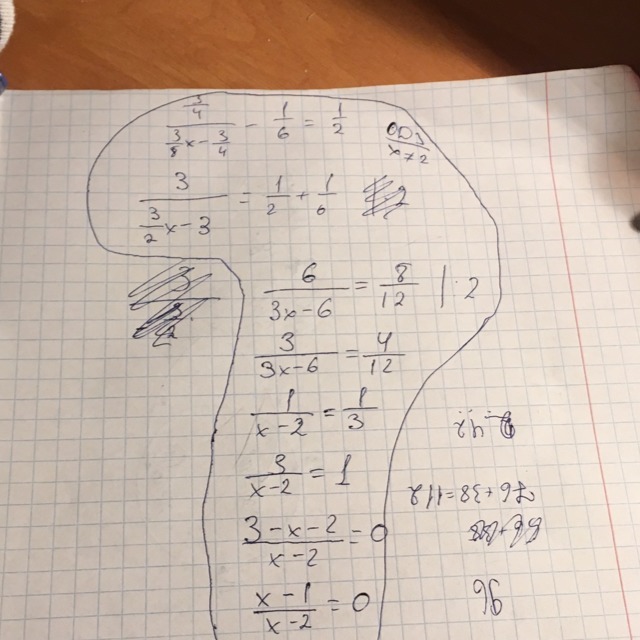 (3/4)/(3/8x - 3/4) - 1/6 = 1/2
ОДЗ
x ≠ 2
3/(3/2x - 3) = 1/2 + 1/6
6/(3x - 6) = 8/12 | · 2
3/(3x - 6) = 4/12
1/(x - 2) = 1/3
3/(x - 2) = 1
(3 - x - 2)/(x - 2) = 0
(x - 1)/(x - 2) = 0
76 + 38 = 112
96